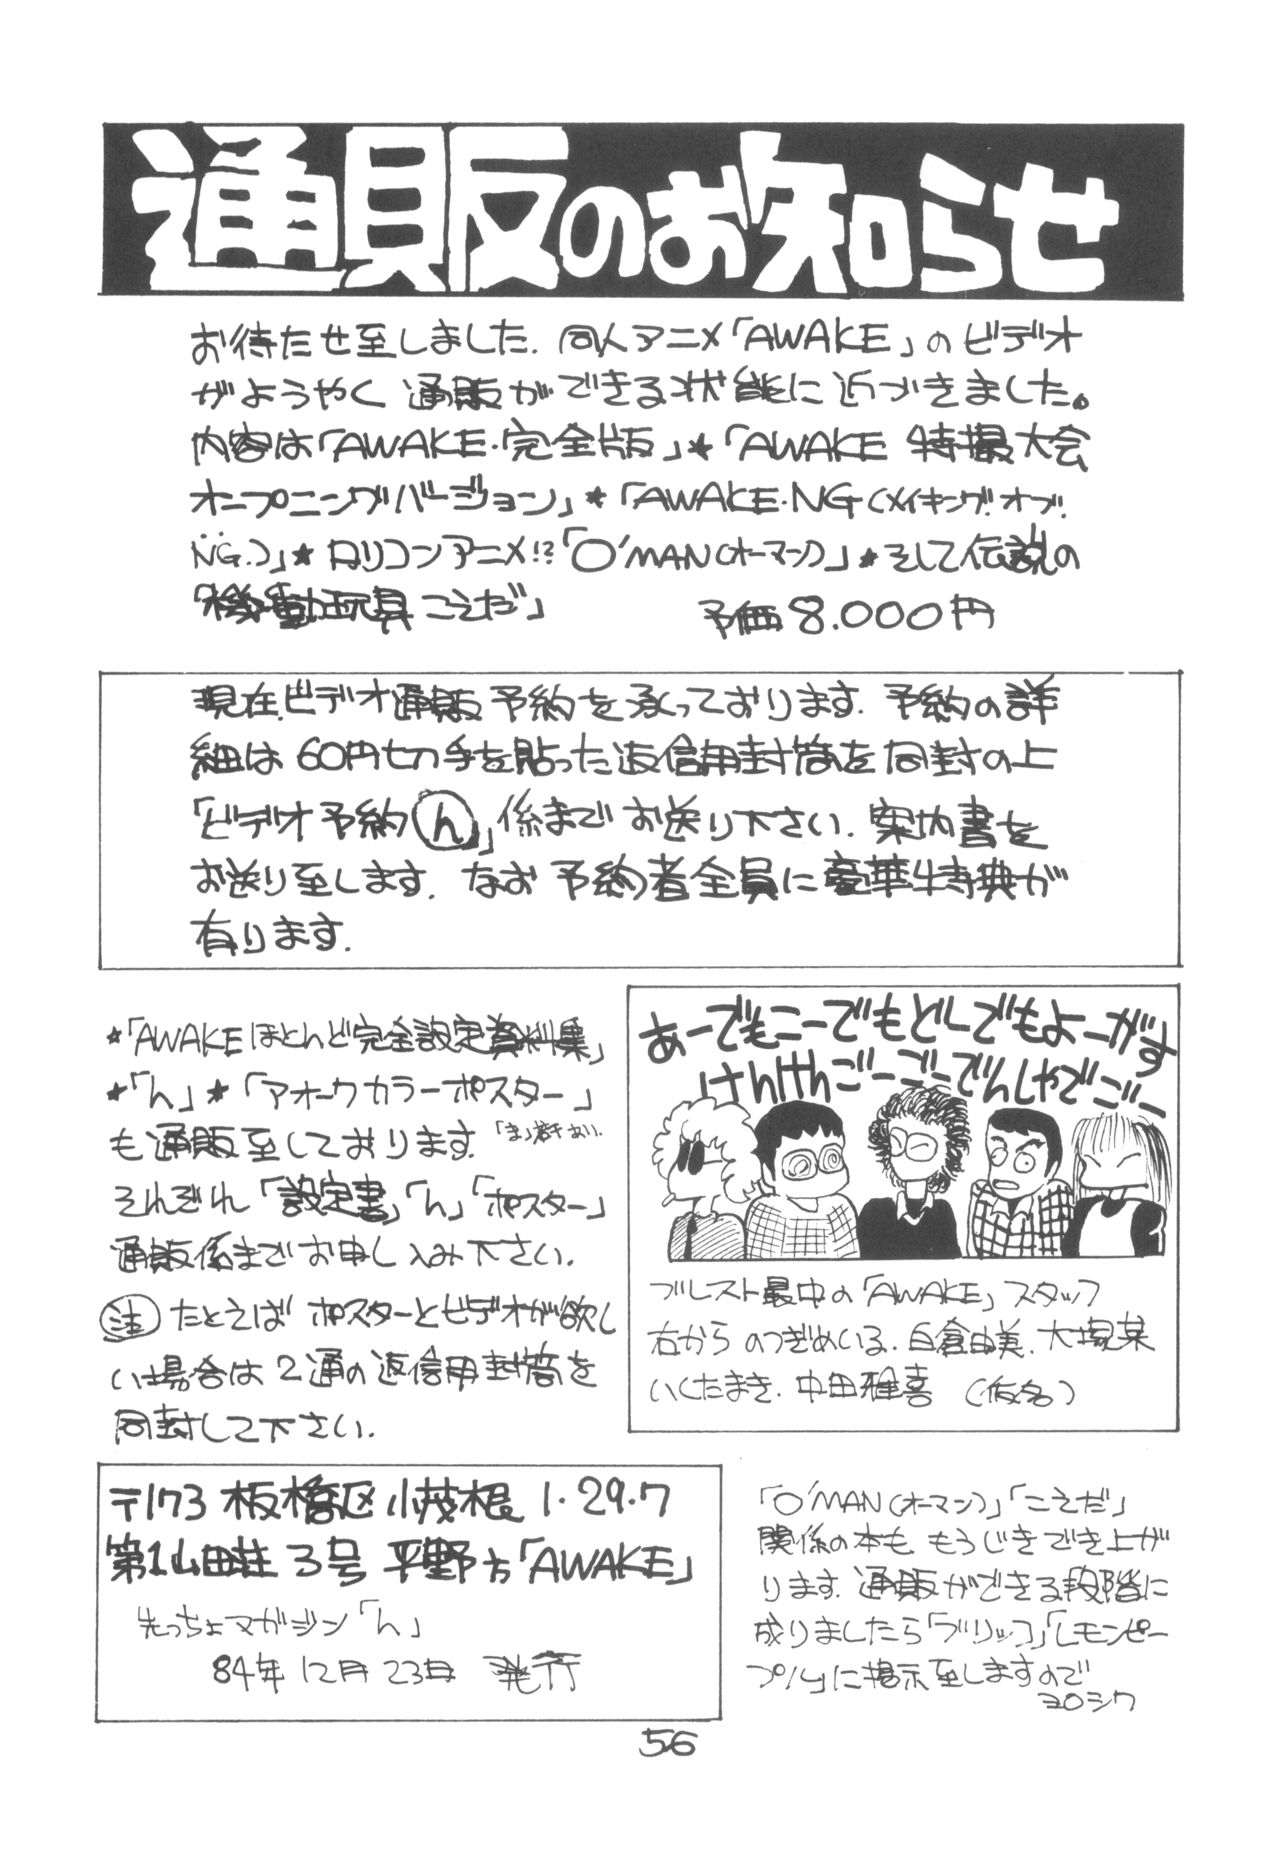 通販のお知らせ
お待たせ至しました. 同人アニメ「AWAKE」のビデオ
がようやく 通販ができる状態に近づきました。
内容は「AWAKE・完全版」★「AWAKE 特撮大会
オープニングバージョン」★「AWAKE・NG(メイキング・オブ・
NG.)」★ロリコンアニメ!?「O'MAN(オーマン)」★そして伝説の
「機動玩具こえだ」 予価8.000円
現在ビデオ通販予約を承っております. 予約の詳
細は60円切手を貼った返信用封筒を同封の上
「ビデオ予約ん」係までお送り下さい. 案内書を
お送り至します. なお予約者全員に豪華特典が
有ります.
★「AWAKEほとんど完全設定資料集」
★「ん」★「アオークカラーポスター」
も通販至しております.
それぞれ「設定書」「ん」「ポスター」
通販係までお申し込み下さい.
注 たとえば ポスターとビデオが欲し
い場合は2通の返信用封筒を
同封して下さい.
あーでもこーでもどーでもよーがす
けんけんごーごーでんしゃでごー
ブレスト最中の「AWAKE」スタッフ
右から のつぎめいる. 白倉由美. 大場某
いくたまき. 中田雅喜 (仮名)
〒173 板橋区小茂根1・29・7
第1山田荘3号 平野方「AWAKE」
先っちょマガジン「ん」
84年12月23日 発行
「O'MAN(オーマン)」「こえだ」
関係の本も もうじきでき上が
ります. 通販ができる段階に
成りましたら「ブリッコ」「レモンピー
プル」に掲示至しますので
ヨロシク
56